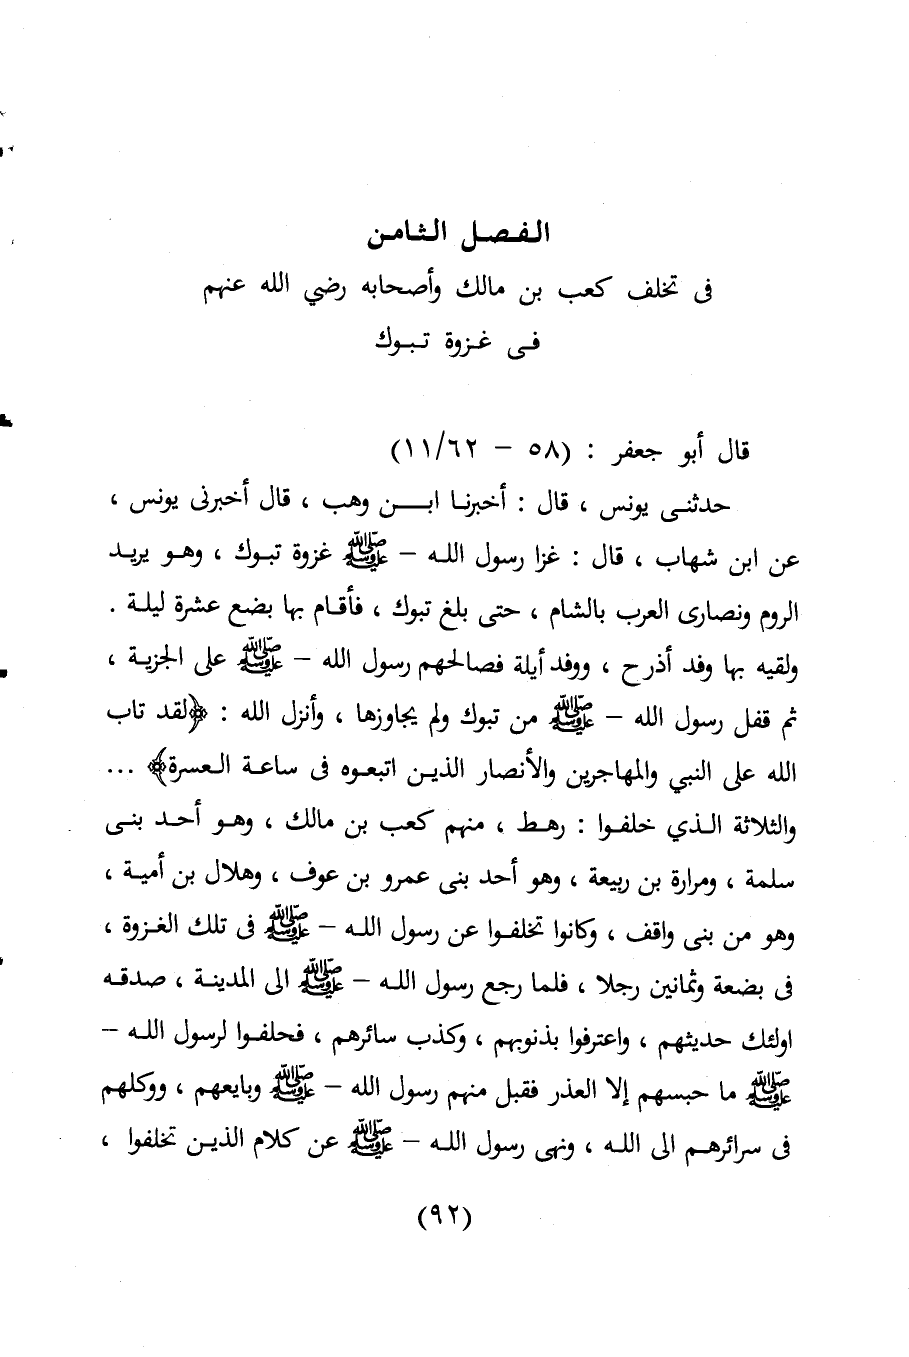 الفصل الثامن
فى تخلف كعب بن مالك وأصحابه رضي الله عنهم
فى غزوة تبوك
قال أبو جعفر : (٥٨ – ١١/٦٢)
حدثنى يونس ، قال : أخبرنا ابن وهب ، قال أخبرنى يونس ،
عن ابن شهاب ، قال : غزا رسول الله – ﷺ غزوة تبوك ، وهو يريد
الروم ونصارى العرب بالشام ، حتى بلغ تبوك ، فأقام بها بضع عشرة ليلة .
ولقيه بها وفد أذرح ، ووفد أيلة فصالحهم رسول الله – ﷺ على الجزية ،
ثم قفل رسول الله – ﷺ من تبوك ولم يجاوزها ، وأنزل الله : ﴿لقد تاب
الله على النبي والمهاجرين والأنصار الذين اتبعوه فى ساعة العسرة﴾ ...
والثلاثة الذي خلفوا : رهط ، منهم كعب بن مالك ، وهو أحد بنى
سلمة ، ومرارة بن ربيعة ، وهو أحد بنى عمرو بن عوف ، وهلال بن أمية ،
وهو من بنى واقف ، وكانوا تخلفوا عن رسول الله – ﷺ فى تلك الغزوة ،
فى بضعة وثمانين رجلا ، فلما رجع رسول الله – ﷺ الى المدينة ، صدقه
اولئك حديثهم ، واعترفوا بذنوبهم ، وكذب سائرهم ، فحلفوا لرسول الله –
ﷺ ما حبسهم إلا العذر فقبل منهم رسول الله – ﷺ وبايعهم ، ووكلهم
فى سرائرهم الى الله ، ونهى رسول الله – ﷺ عن كلام الذين تخلفوا ،
(٩٢)